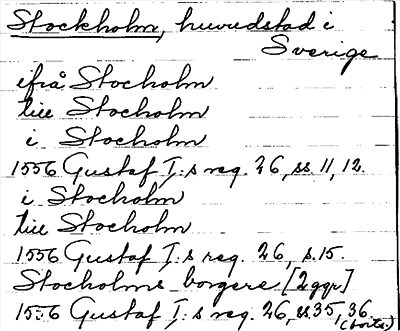 Stockholm, huvudstad i
Sverige
ifrå Stocholm
till Stocholm
i Stocholm
1556 Gustaf I:s reg. 26, ss. 11, 12.
i Stocholm
till Stocholm
1556 Gustaf I:s reg. 26, s. 15.
Stocholms borgere [2 ggr]
1556 Gustaf I:s reg. 26, ss 35, 36